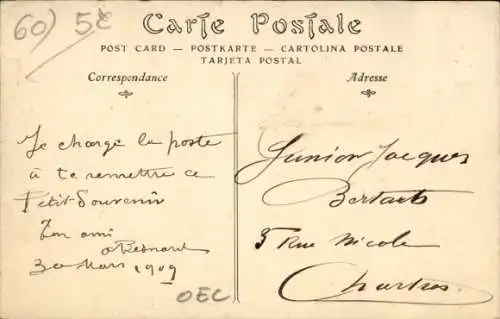 60) 5€
Carte Postale
POST CARD — POSTKARTE — CARTOLINA POSTALE
TARJETA POSTAL
Correspondance
Je charge la poste
à te remettre ce
Petit Souvenir
Ton ami
Besnard
30 Mars 1909
OEC
Adresse
Junior Jacques
5 Rue Nicole
Chartres